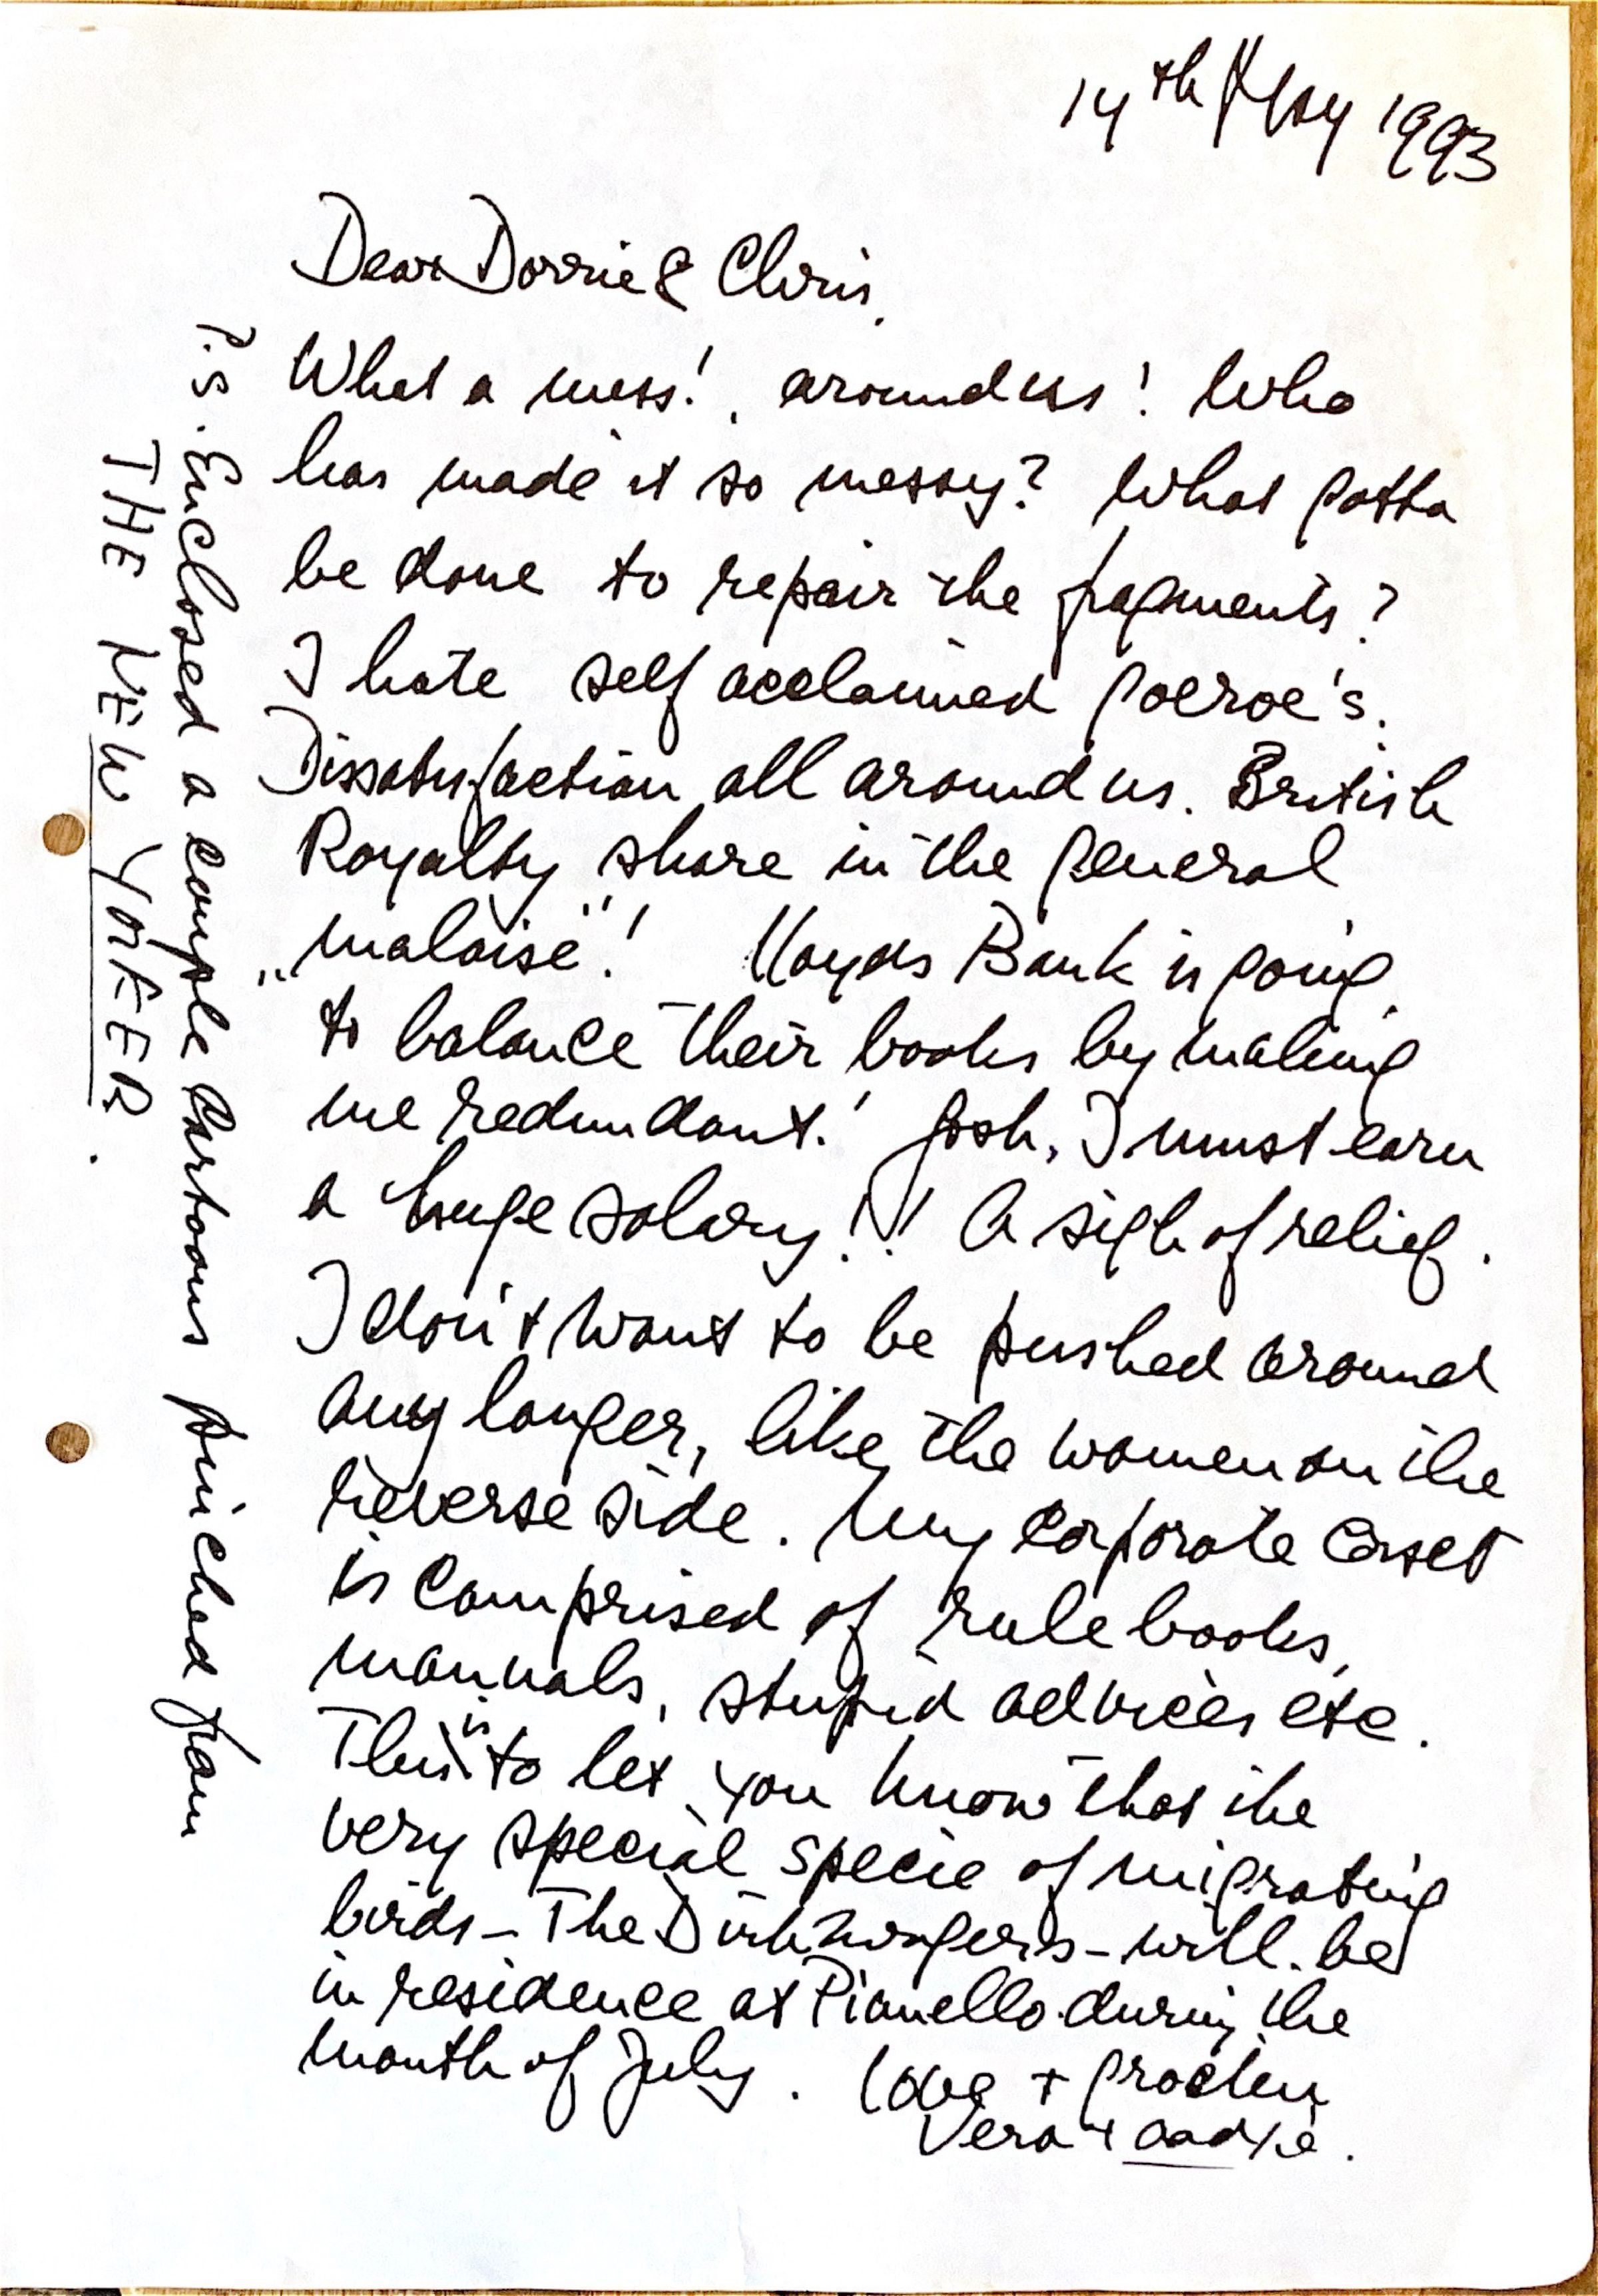 14th May 1993
Dear Dorrie & Chris,
What a mess! around us! Who
has made it so messy? What gotta
be done to repair the fragments?
I hate self acclaimed goeroe's.
Dissatisfaction all around us. British
Royalty share in the general
„malaise"! Lloyds Bank is going
to balance their books by making
me redundant! Gosh, I must earn
a huge salary!! A sigh of relief.
I don't want to be pushed around
any longer, like the women on the
reverse side. My corporate corset
is comprised of rule books,
manuals, stupid advices etc.
This is to let you know that the
very special specie of migrating
birds - The - will be
in residence at Pianello during the
month of July. Love + groeten
Vera + Aadje.
P.S. Enclosed a couple cartoons pinched from
THE NEW YORKER.